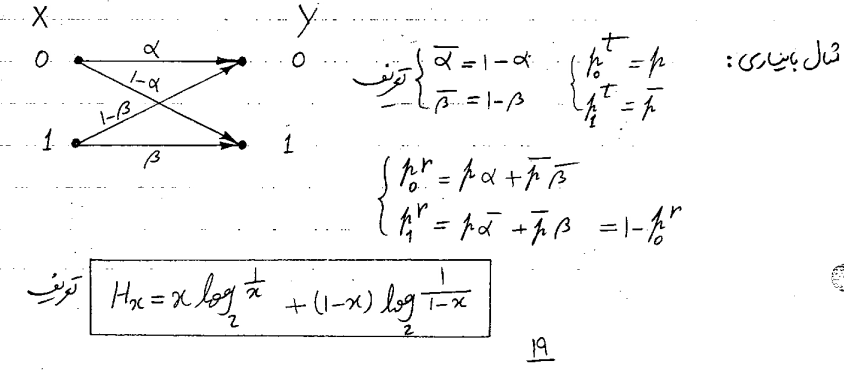 مثال باینری:
X Y
0 α 0
1-α
1-β
1 β 1
تعریف { ᾱ = 1-α
β̄ = 1-β
{ p₀ᵗ = p
p₁ᵗ = p̄
{ p₀ʳ = pα + p̄ β̄
p₁ʳ = pᾱ + p̄β = 1-p₀ʳ
تعریف Hₓ = x log₂ 1/x + (1-x) log₂ 1/(1-x)
19